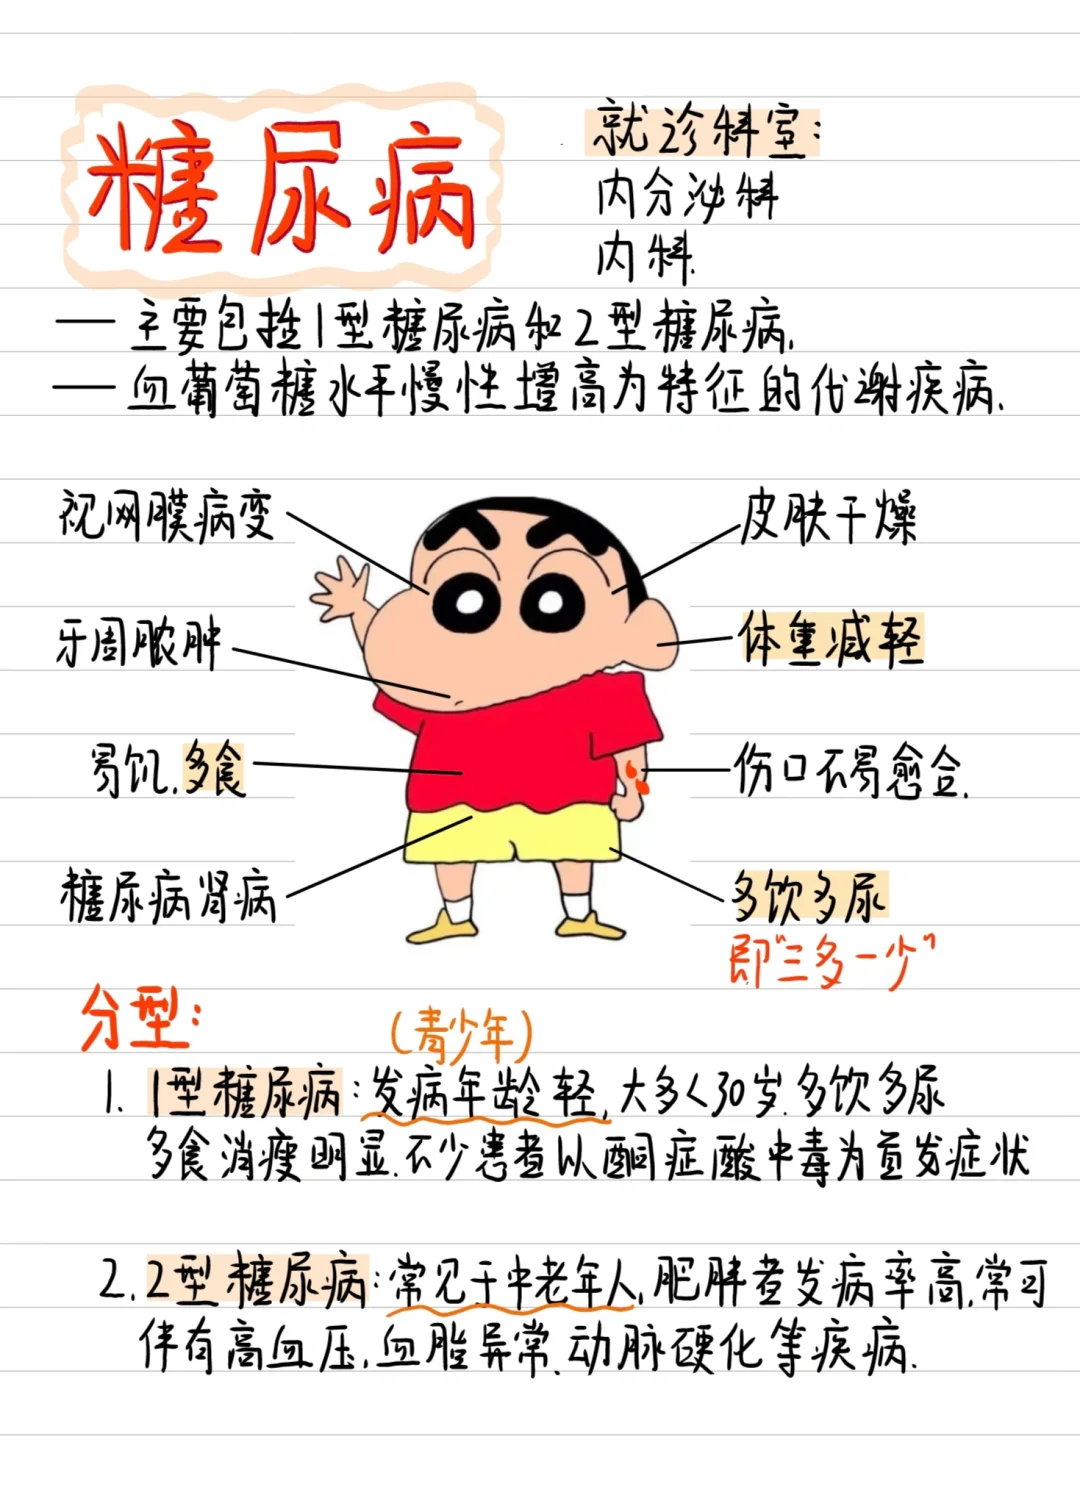 糖尿病
就诊科室:
内分泌科
内科.
— 主要包括1型糖尿病和2型糖尿病.
— 血葡萄糖水平慢性增高为特征的代谢疾病.
视网膜病变
皮肤干燥
牙周脓肿
体重减轻
易饥.多食
伤口不易愈合.
糖尿病肾病
多饮多尿
即"三多一少"
分型:
(青少年)
1. 1型糖尿病:发病年龄轻,大多<30岁.多饮多尿
多食消瘦明显.不少患者以酮症酸中毒为首发症状
2. 2型糖尿病:常见于中老年人,肥胖者发病率高.常可
伴有高血压,血脂异常、动脉硬化等疾病.